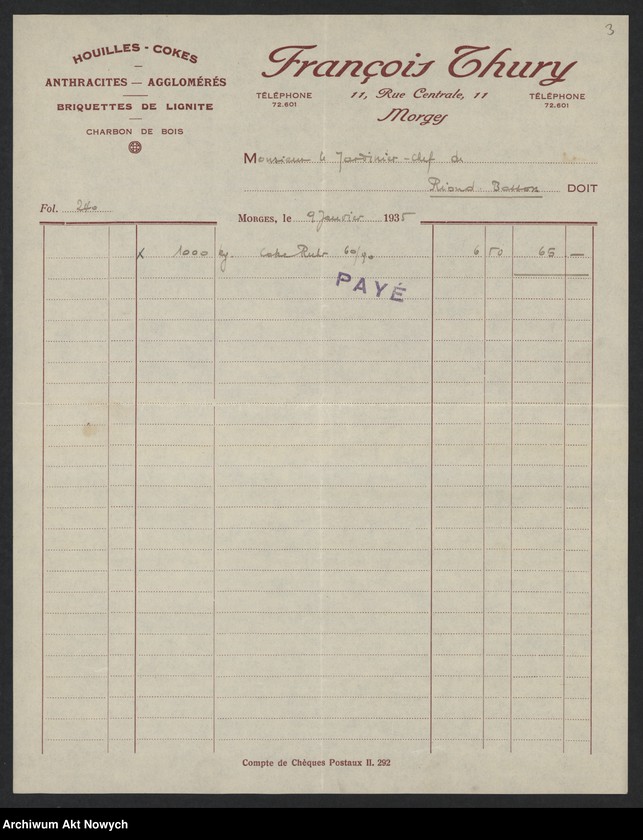 3
HOUILLES - COKES
ANTHRACITES — AGGLOMÉRÉS
BRIQUETTES DE LIGNITE
CHARBON DE BOIS
François Thury
TÉLÉPHONE
72.601
11, Rue Centrale, 11
Morges
TÉLÉPHONE
72.601
Monsieur le Jardinier-chef de
Riond Bosson DOIT
Fol. 240
MORGES, le 9 Janvier 1935
x 1000 kg. Coke Ruhr 60/90 6 50 65 —
PAYÉ
Compte de Chèques Postaux II. 292
Archiwum Akt Nowych